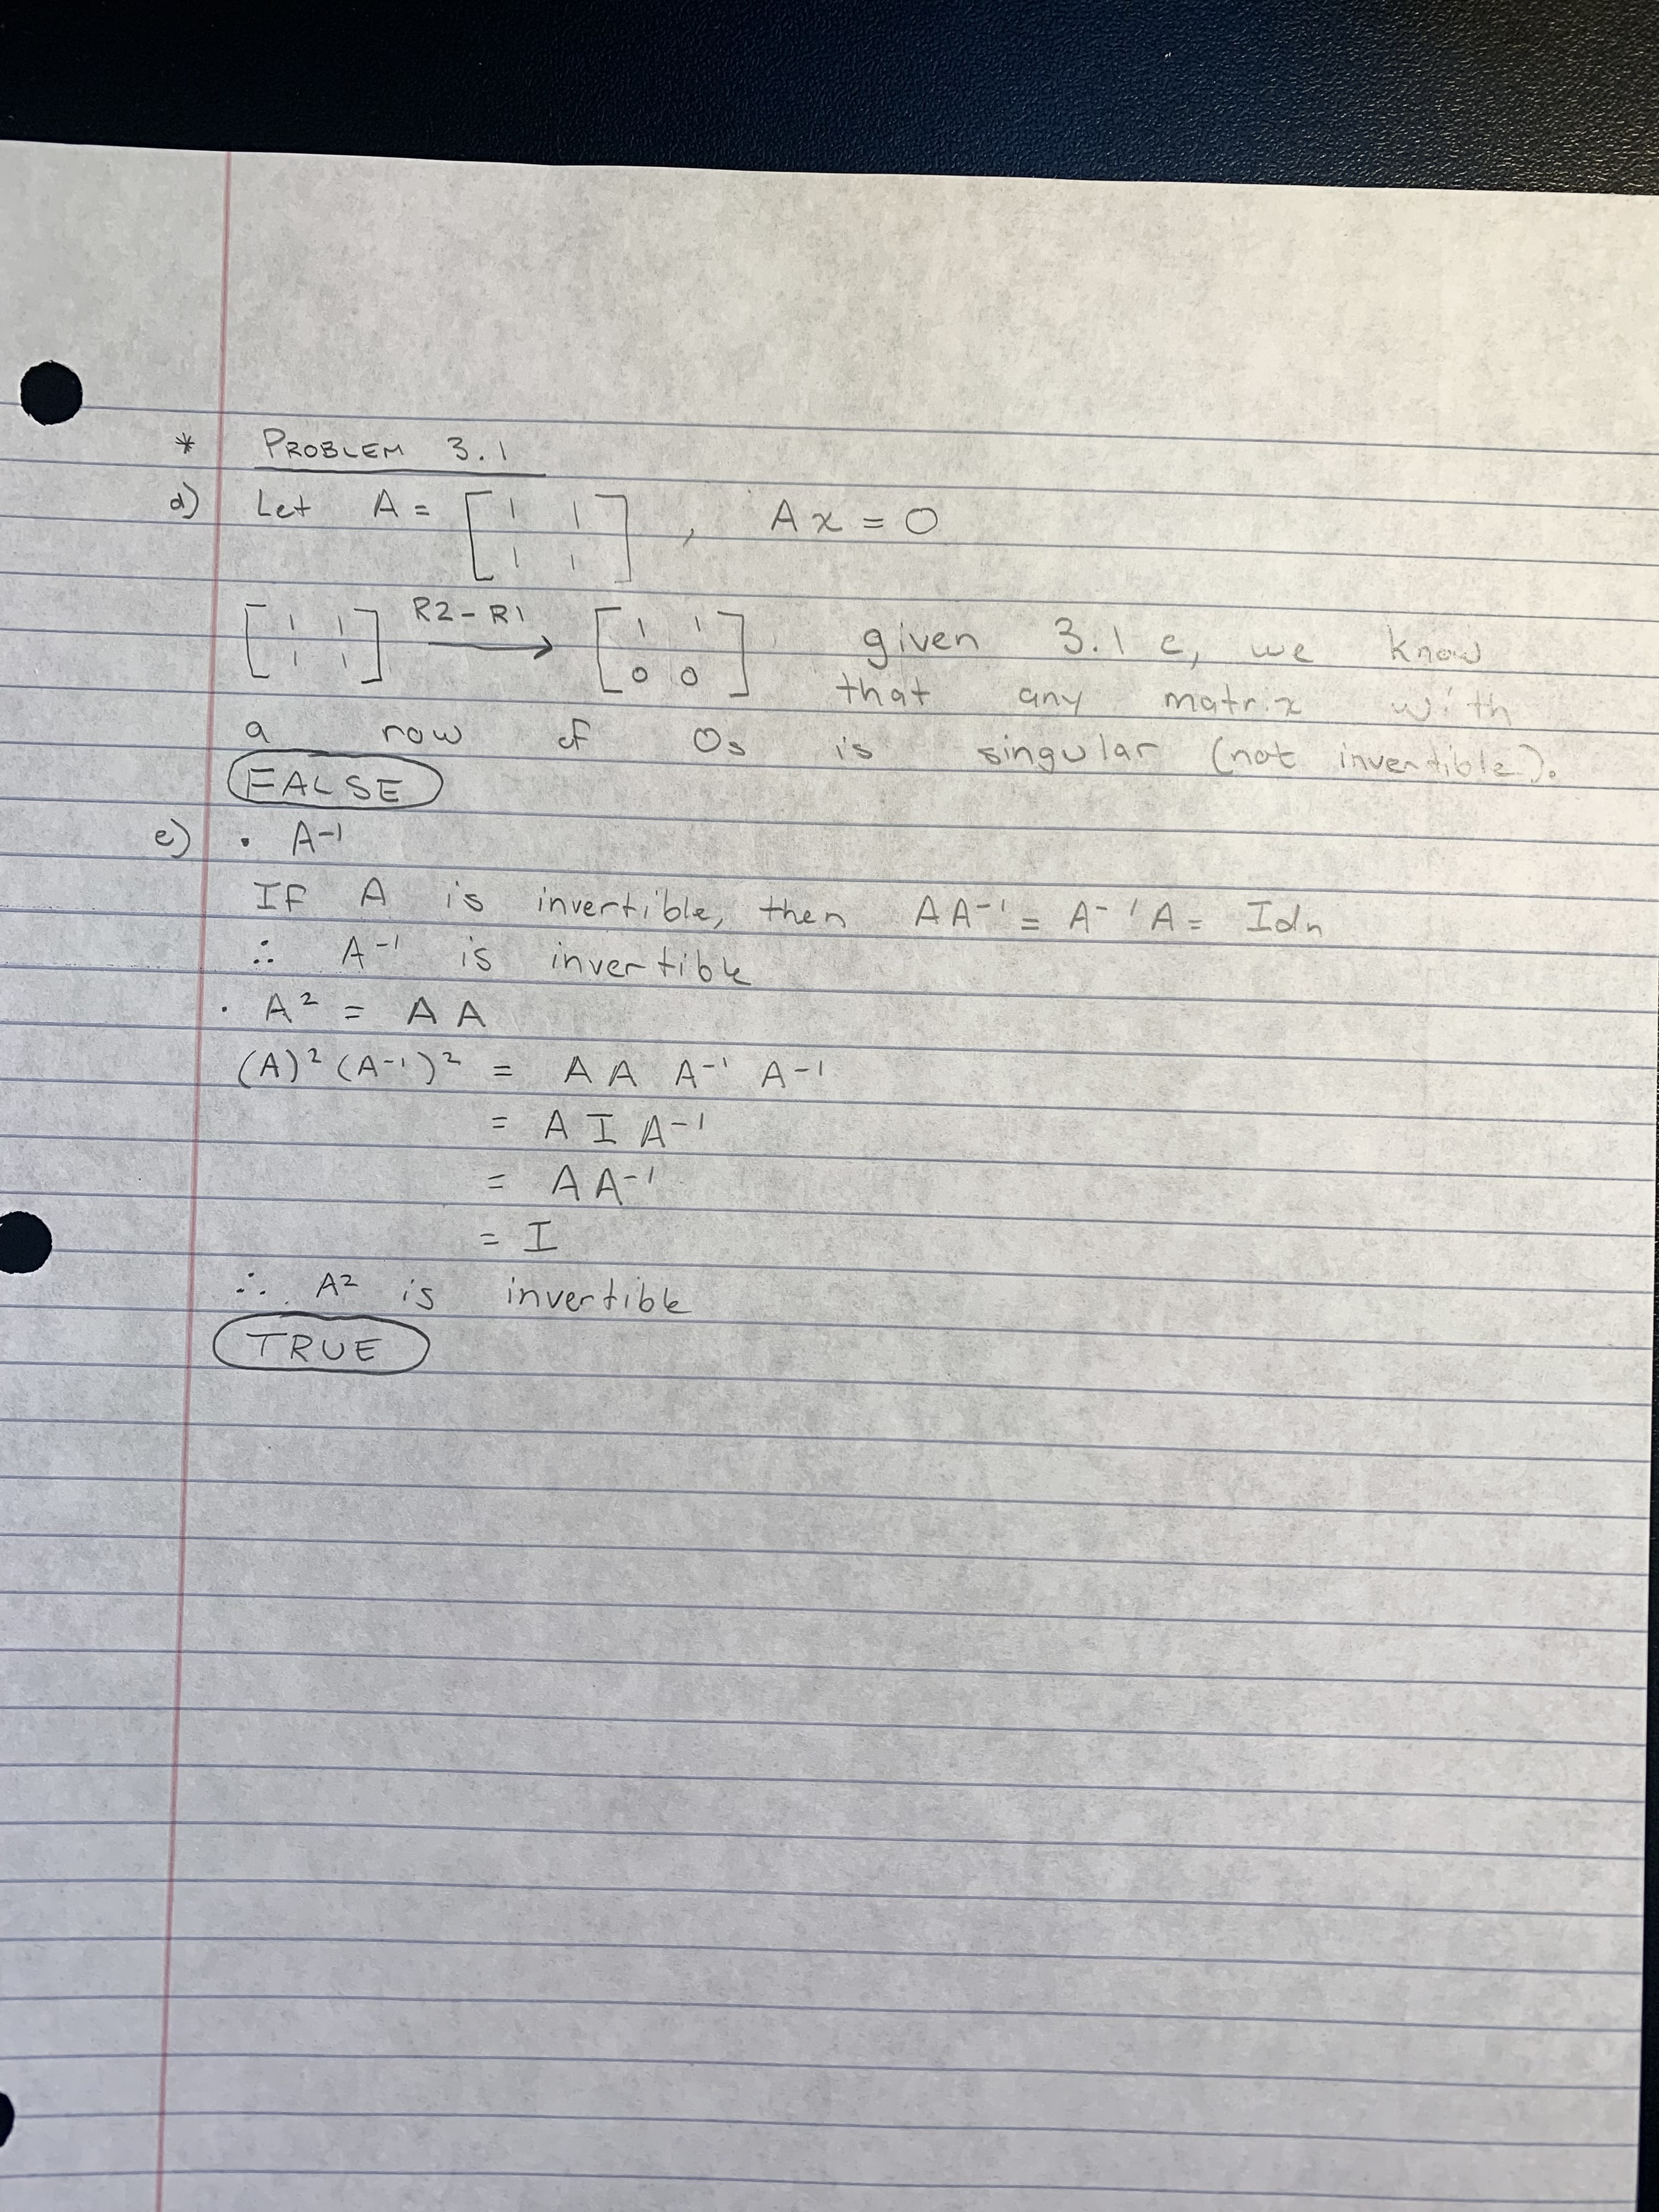 * PROBLEM 3.1
d) Let A = [ 1 1 ; 1 1 ] , Ax = 0
[ 1 1 ; 1 1 ] R2-R1 → [ 1 1 ; 0 0 ] given 3.1 c, we know
that any matrix with
a row of 0s is singular (not invertible).
FALSE
e) • A⁻¹
If A is invertible, then AA⁻¹ = A⁻¹A = Idn
∴ A⁻¹ is invertible
• A² = AA
(A)²(A⁻¹)² = A A A⁻¹ A⁻¹
= A I A⁻¹
= A A⁻¹
= I
∴ A² is invertible
TRUE